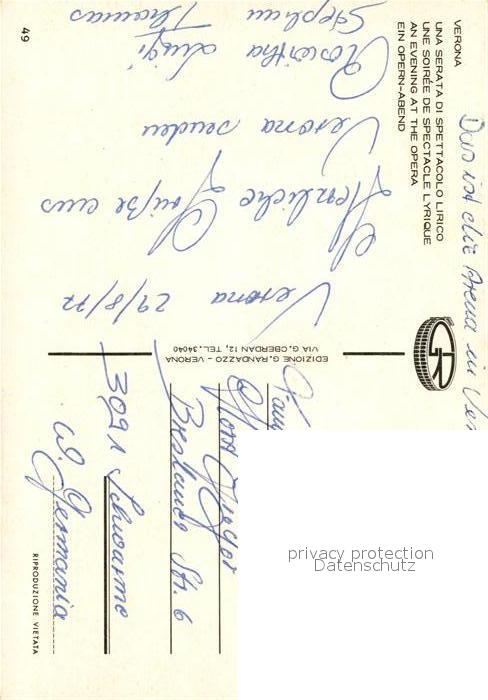 VERONA
UNA SERATA DI SPETTACOLO LIRICO
UNE SOIRÉE DE SPECTACLE LYRIQUE
AN EVENING AT THE OPERA
EIN OPERN-ABEND
Das ist die Arena in Ver
Verona 29/8/72
Herzliche Grüße aus
Verona senden
Roswitha Luigi
Stephan
Thomas
49
EDIZIONE G. RANDAZZO - VERONA
VIA G. OBERDAN 12, TEL. 34040
GR
Fam
Horst
Breslauer Str. 6
3091
W. Germania
RIPRODUZIONE VIETATA
privacy protection
Datenschutz